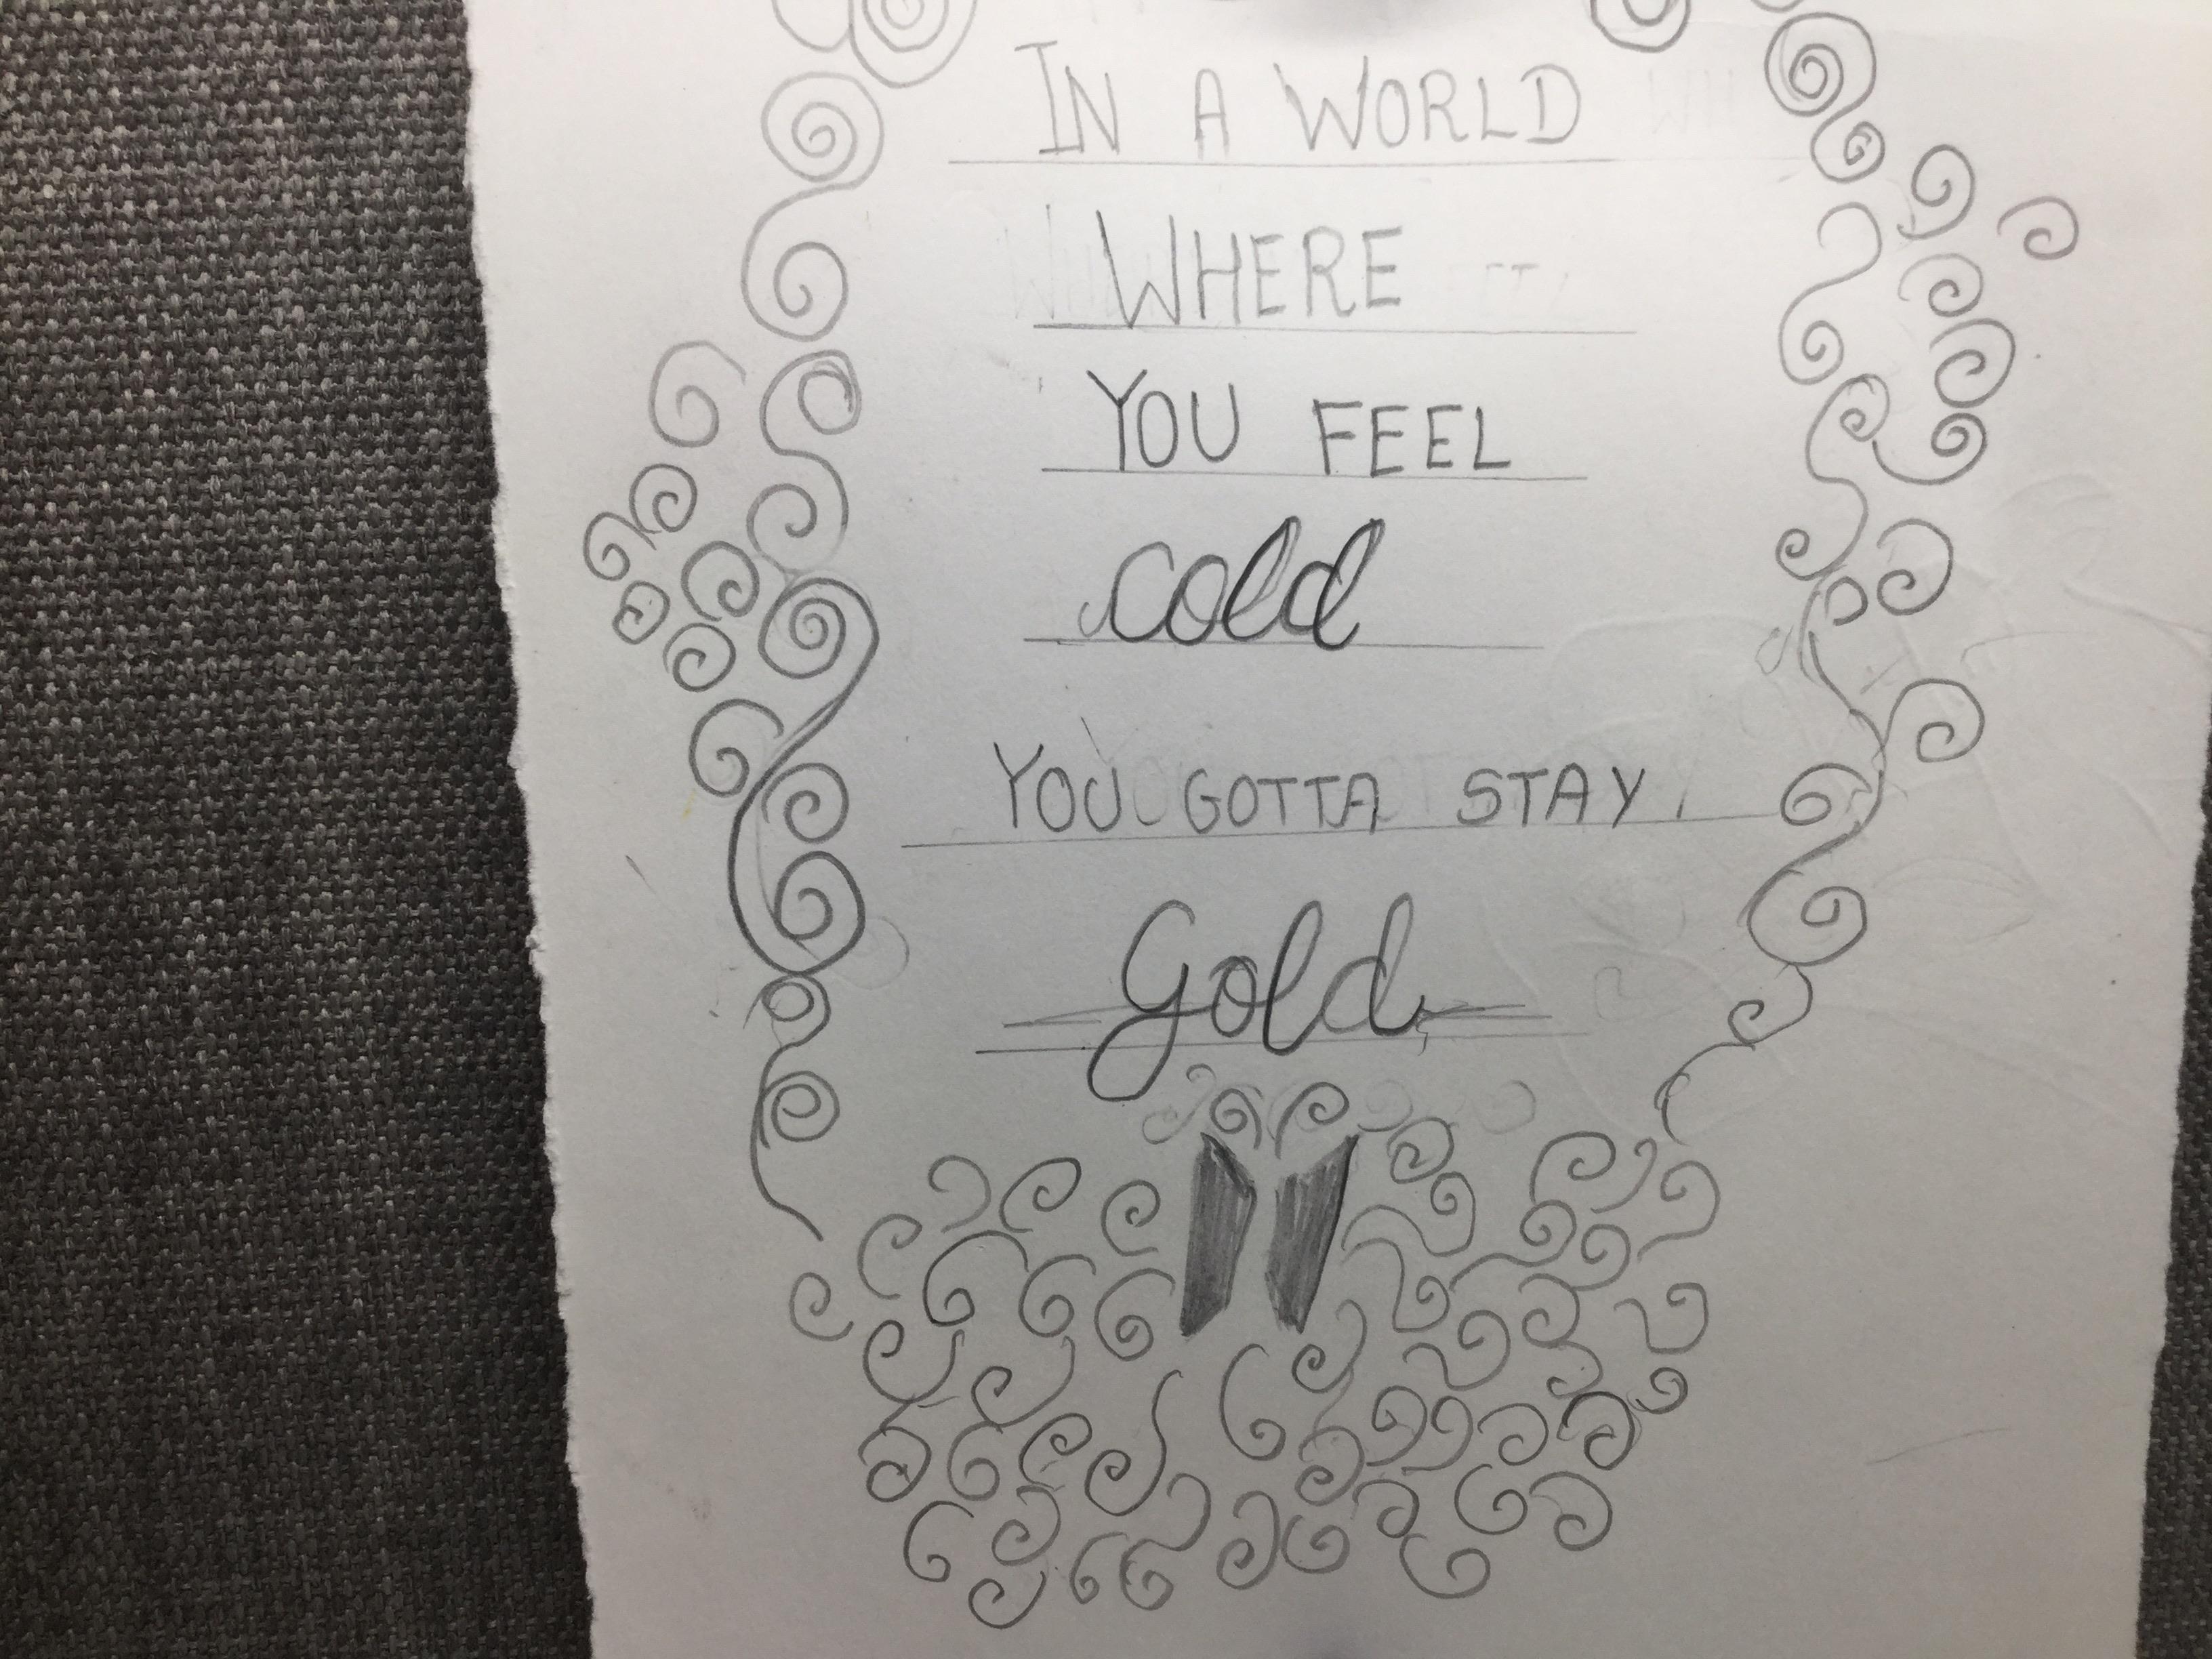 IN A WORLD
WHERE
YOU FEEL
cold
YOU GOTTA STAY
Gold